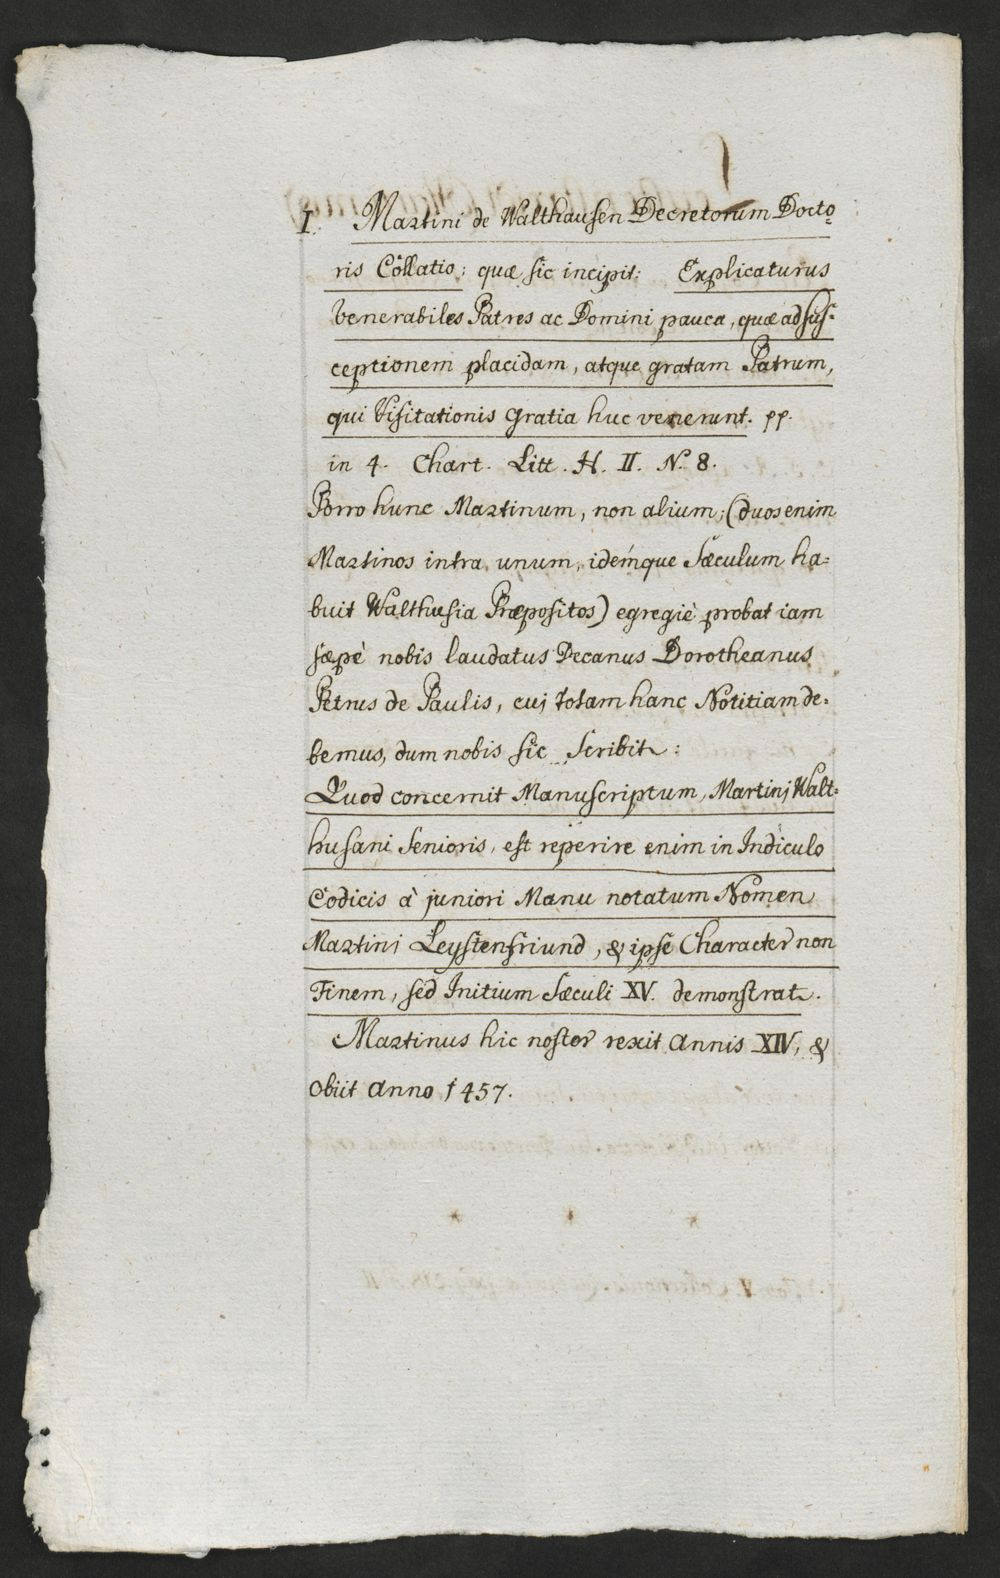 I. Martini de Walthausen Decretorum Docto=
ris Collatio: quæ sic incipit: Explicaturus
Venerabiles Patres ac Domini pauca, quæ ad sus=
ceptionem placidam, atque gratam Patrum,
qui Visitationis gratia huc venerunt. pp.
in 4. Chart. Litt. H. II. N. 8.
Porro hunc Martinum, non alium; (duos enim
Martinos intra unum, idemque Sæculum ha=
buit Walthusia Præpositos) egregiè probat iam
sæpè nobis laudatus Decanus Dorotheanus
Petrus de Paulis, cui totam hanc Notitiam de=
bemus, dum nobis sic Scribit:
Quod concernit Manuscriptum, Martini Walt=
husani Senioris, est reperire enim in Indiculo
Codicis à juniori Manu notatum Nomen
Martini Leystenfriund, & ipse Character non
Finem, sed Initium Sæculi XV. demonstrat.
Martinus hic noster rexit Annis XIV, &
Obiit Anno 1457.